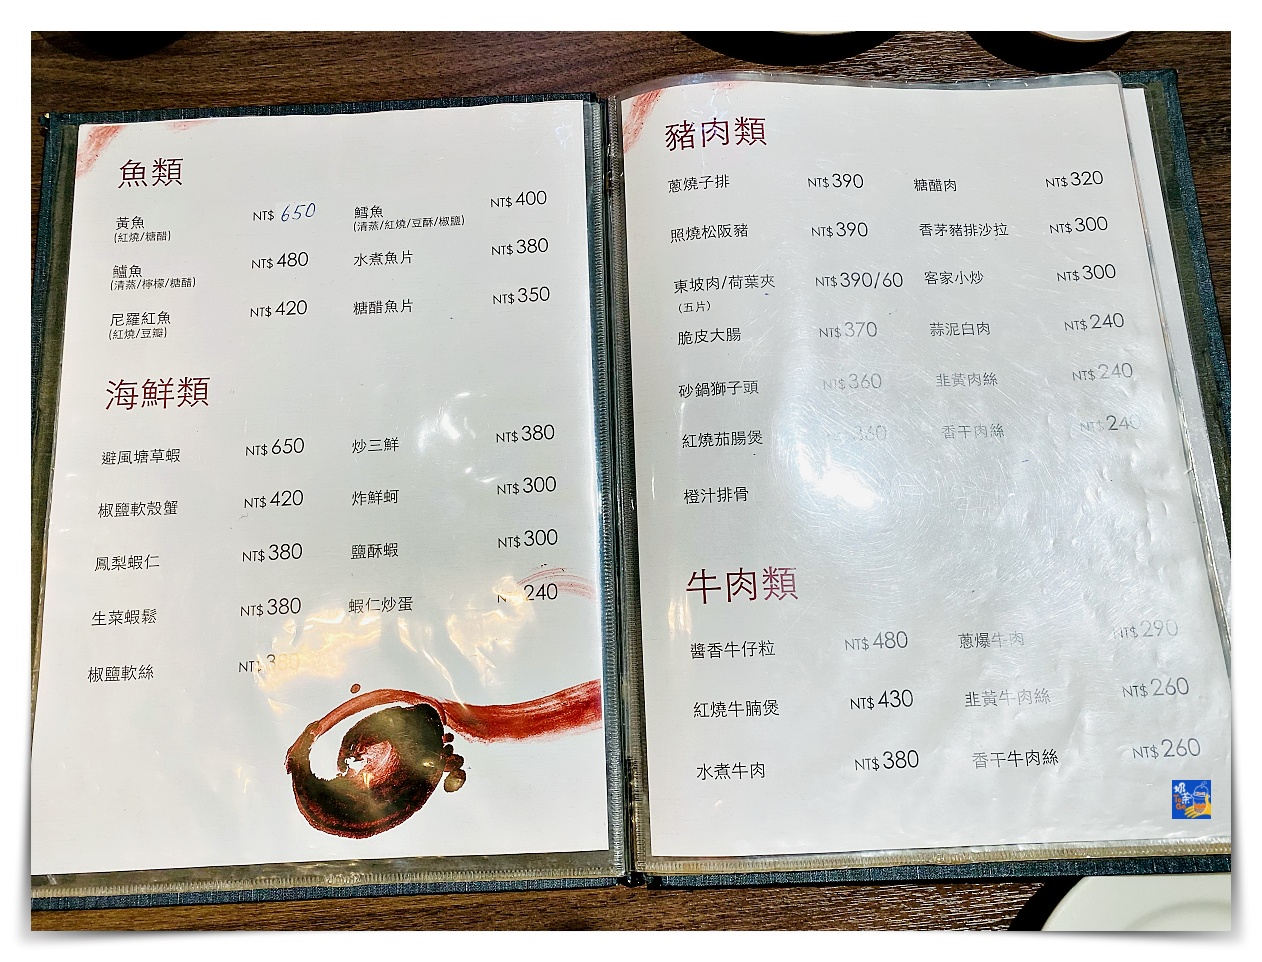 魚類
黃魚 NT$ 650 鱈魚 NT$ 400
(紅燒/糖醋) (清蒸/紅燒/豆酥/椒鹽)
鱸魚 NT$ 480 水煮魚片 NT$ 380
(清蒸/檸檬/糖醋)
尼羅紅魚 NT$ 420 糖醋魚片 NT$ 350
(紅燒/豆瓣)
海鮮類
避風塘草蝦 NT$ 650 炒三鮮 NT$ 380
椒鹽軟殼蟹 NT$ 420 炸鮮蚵 NT$ 300
鳳梨蝦仁 NT$ 380 鹽酥蝦 NT$ 300
生菜蝦鬆 NT$ 380 蝦仁炒蛋 240
椒鹽軟絲 NT$
豬肉類
蔥燒子排 NT$ 390 糖醋肉 NT$ 320
照燒松阪豬 NT$ 390 香茅豬排沙拉 NT$ 300
東坡肉/荷葉夾 NT$ 390/60 客家小炒 NT$ 300
(五片)
脆皮大腸 NT$ 370 蒜泥白肉 NT$ 240
砂鍋獅子頭 NT$ 360 韭黃肉絲 NT$ 240
紅燒茄腸煲 360 香干肉絲 NT$ 240
橙汁排骨
牛肉類
醬香牛仔粒 NT$ 480 蔥爆牛肉 NT$ 290
紅燒牛腩煲 NT$ 430 韭黃牛肉絲 NT$ 260
水煮牛肉 NT$ 380 香干牛肉絲 NT$ 260
奶茶